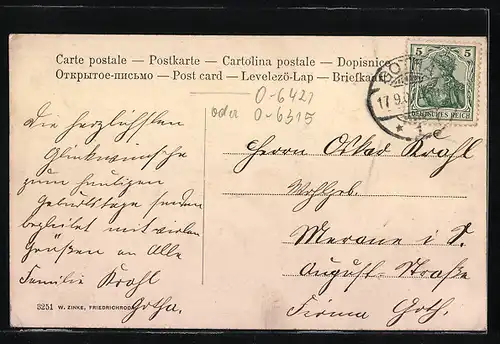 Carte postale — Postkarte — Cartolina postale — Dopisnice
Открытое-письмо — Post card — Levelező-Lap — Briefka
5 5
DEUTSCHES REICH
GOTH
17.9.0
O-6421
oder O-6515
Die herzlichsten
Glückwünsche
zum heutigen
Geburtstage senden
begleitet mit vielen
Grüßen an Alle
Familie Krahl
Gotha.
Herrn Oskar Krahl
Wohlgeb.
Merane i. S.
August-Straße
Firma Goth.
3251 W. ZINKE, FRIEDRICHRODA